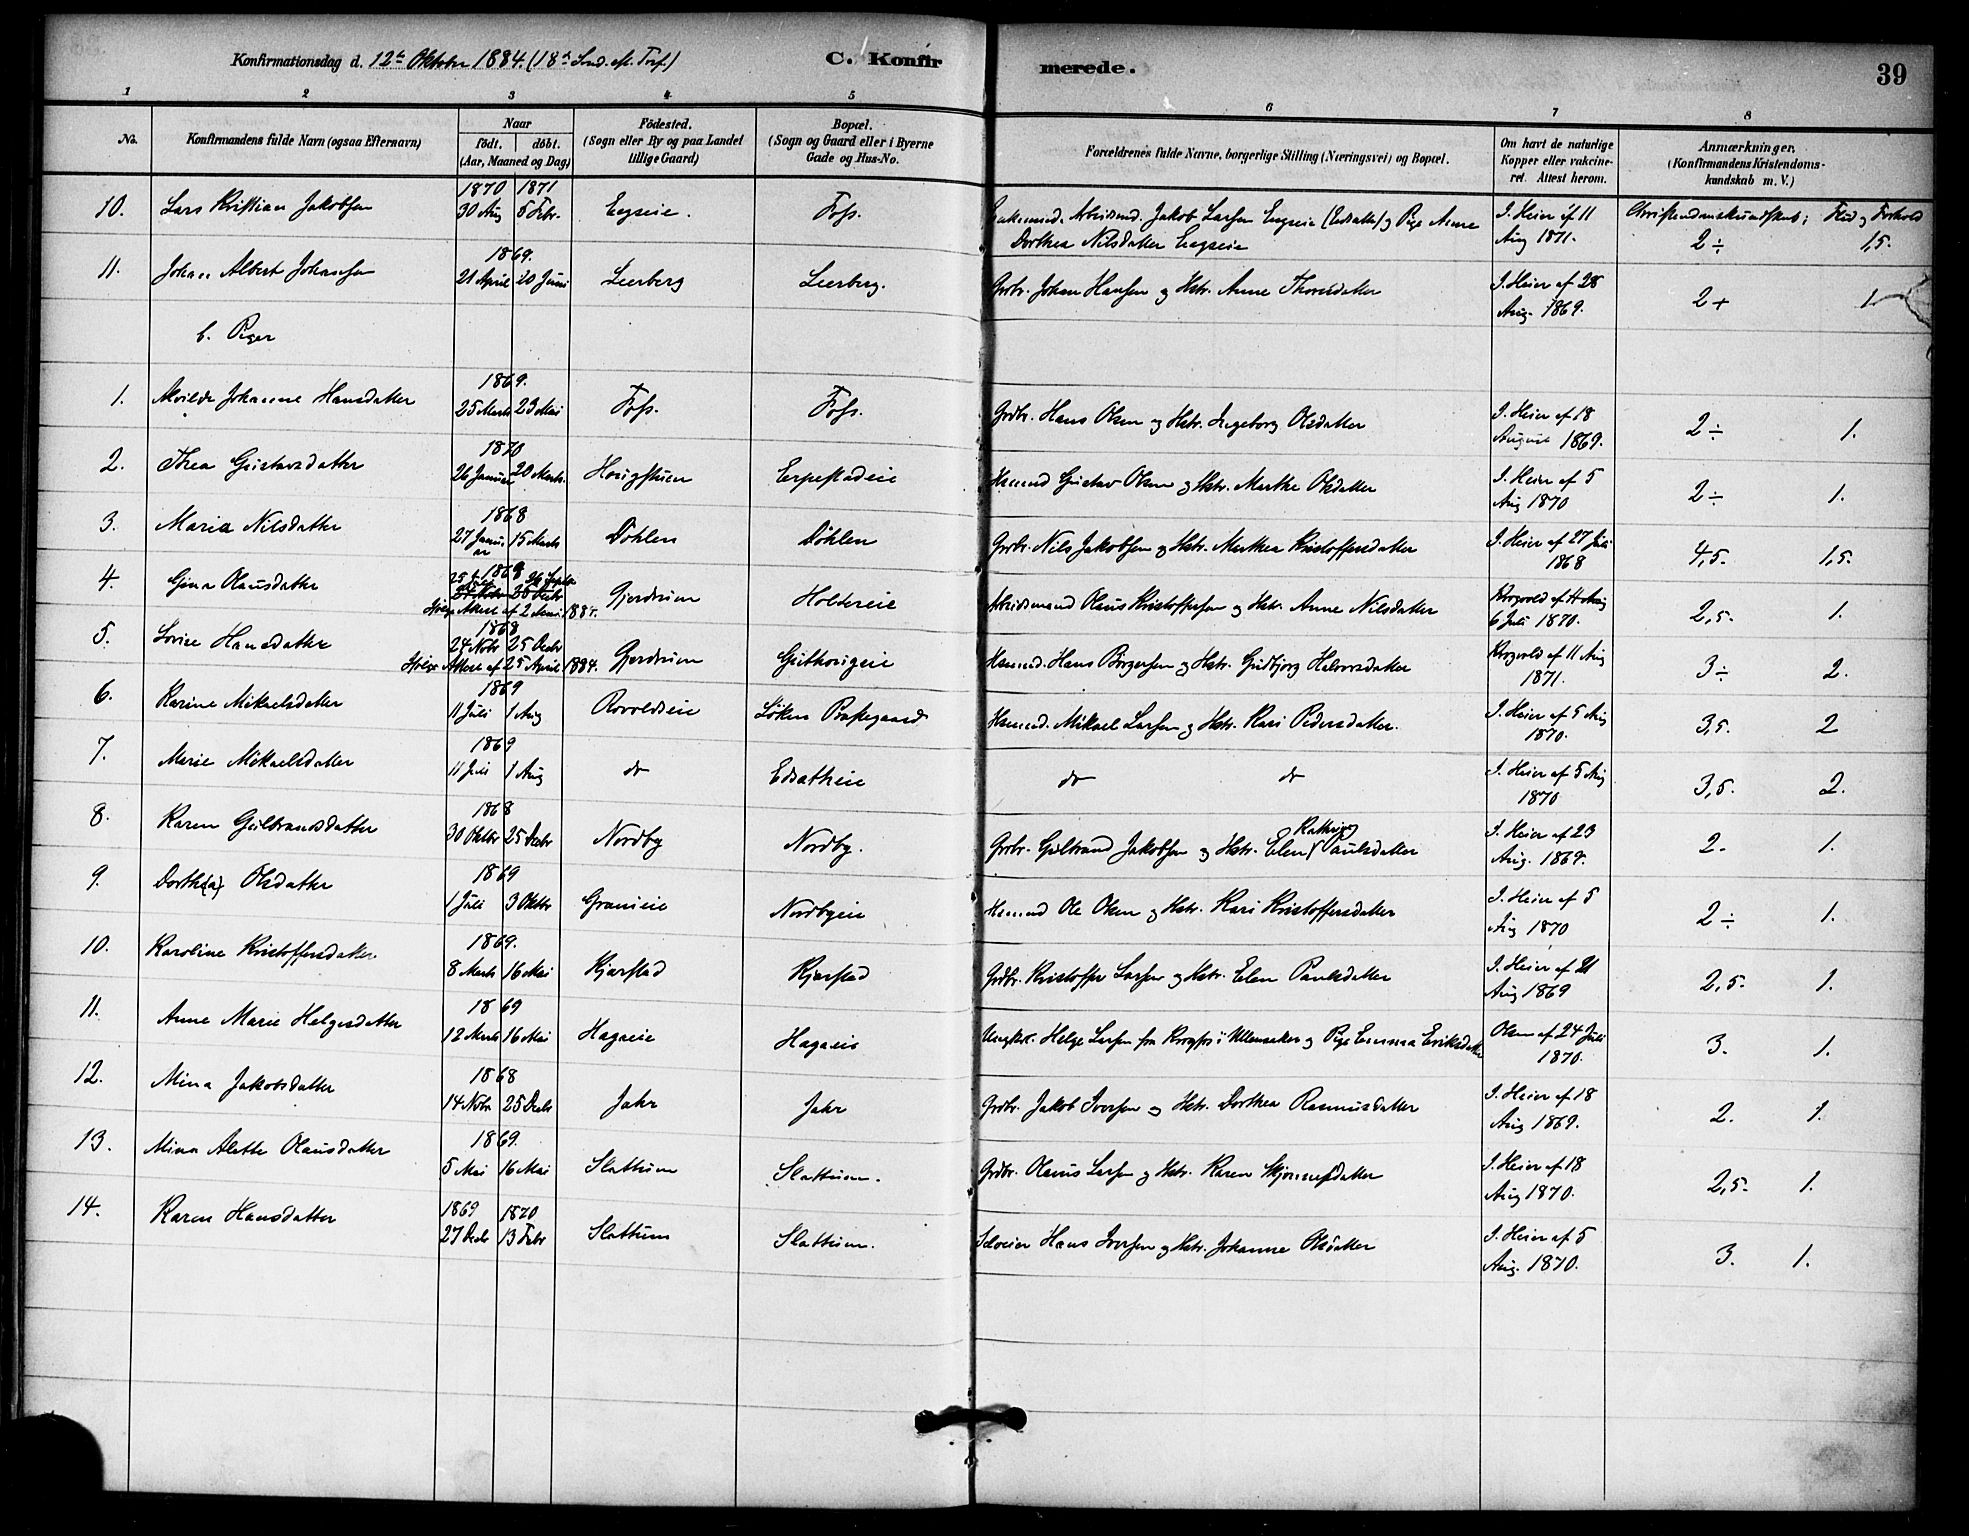 Konfirmationsdag d. 12te Oktober 1884. (18de Sønd. ef. Tref.) C. Konfirmerede. 39
1 2 3 4 5 6 7 8
No. Konfirmandens fulde Navn (ogsaa Efternavn) Naar Födt. döbt. (Aar, Maaned og Dag) Födested. (Sogn eller By og paa Landet tillige Gaard) Bopæl. (Sogn og Gaard eller i Byerne Gade og Hus-No. Forældrenes fulde Navne, borgerlige Stilling (Næringsvei) og Bopæl. Om havt de naturlige Kopper eller vakcineret. Attest herom. Anmærkninger. (Konfirmandens Kristendomskundskab m. V.)
1870 1871
10. Lars Kristian Jakobsen 30 Aug 5 Febr. Engseie. Foss. Arbeidsmd. Jakob Larsen Engseie og Pige Anne J. Heier af 11 Christendomskundskab; Flid og Forhold
Dorthea Nilsdatter Engseie Aug 1871. 2÷ 1,5.
1869.
11. Johan Albert Johansen 21 April 20 Juni Leerberg Leerberg. Grbr. Johan Hansen og Hstr. Anne Thoresdatter J. Heier af 28
Aug. 1869. 2+ 1.
b. Piger
1869.
1. Alvilde Johanne Hansdatter 25 Marts 23 Mai Foss. Foss. Grdbr. Hans Olsen og Hstr. Ingeborg Olsdatter J. Heier af 18
August 1869. 2÷ 1.
1870
2. Thea Gustavsdatter 26 Januar 20 Marts. Haugstuen Erpestadeie Hsmnd Gustav Olsen og Hstr. Marthe Olsdatter J. Heier af 5
Aug 1870 2÷ 1.
1868
3. Maria Nilsdatter 27 Januar 15 Marts Döhlen Döhlen Grbr. Nils Jakobsen og Hstr. Marthea Kristoffersdatter J. Heier af 27 Juli
1868 4,5. 1,5.
4. Gina Olausdatter Gjerdrum Holtereie Arbeidsmand Olaus Kristoffersen og Hstr. Anne Nilsdatter
ifølge Attest af 2 Juni 1884. 6 Juli 1870. 2,5. 1.
1868
5. Lovise Hansdatter 24 Novbr 25 Decbr Gjerdrum Guthougeie Hsmnd. Hans Börgersen og Hstr. Gudbjørg Halvorsdatter Krogvold af 11 Aug
ifølge Attest af 25 April 1884. 1871. 3÷ 2.
1869
6. Karine Mikaelsdatter 11 Juli 1 Aug Rovoldseie Löken Præstegaard Hsmnd. Mikael Larsen og Hstr. Kari Pedersdatter. J. Heier af 5 Aug
1870. 3,5. 2
1869
7. Marie Mikaelsdatter 11 Juli 1 Aug do Edsatheie do do J. Heier af 5 Aug
1870 3,5. 2.
1868
8. Karen Gulbransdatter 30 Oktbr 25 Decbr Nordby Nordby. Grbr. Gulbrand Jakobsen og Hstr. Elen Kathrine Paulsdatter J. Heier af 23
Aug. 1869. 2. 1.
1869
9. Dorthe(a) Olsdatter 1 Juli 3 Oktbr Graneie Nordbyeie Hsmnd Ole Olsen og Hstr. Kari Kristoffersdatter J. Heier af 5
Aug 1870 2÷ 1.
1869.
10. Karoline Kristoffersdatter 8 Marts 16 Mai Kjærstad Kjærstad Grdbr. Kristoffer Larsen og Hstr. Elen Paulsdatter J. Heier af 21
Aug 1869 2,5. 1.
1869
11. Anne Marie Helgesdatter 12 Marts 16 Mai Hagaeie Hagaeie Ungkrl. Helge Larsen fra Krogfos i Ullensaker og Pige Emma Eriksdatter Olsen af 24 Juli
1870. 3. 1.
1868
12. Mina Jakobsdatter 14 Novbr 25 Decbr Jahr Jahr Grdbr. Jakob Iversen og Hstr. Dorthea Rasmusdatter J. Heier af 18
Aug 1869. 2. 1.
1869.
13. Mina Alette Olausdatter 5 Mai 16 Mai Slattum Slattum. Grdbr. Olaus Larsen og Hstr. Karen Skjønnesdatter J. Heier af 18
Aug 1870. 2,5. 1.
1869 1870
14. Karen Hansdatter 27 Decbr 13 Febr Slattum Slattum. Selveier Hans Iversen og Hstr. Johanne Olsdatter J. Heier af 5
Aug. 1870. 3. 1.